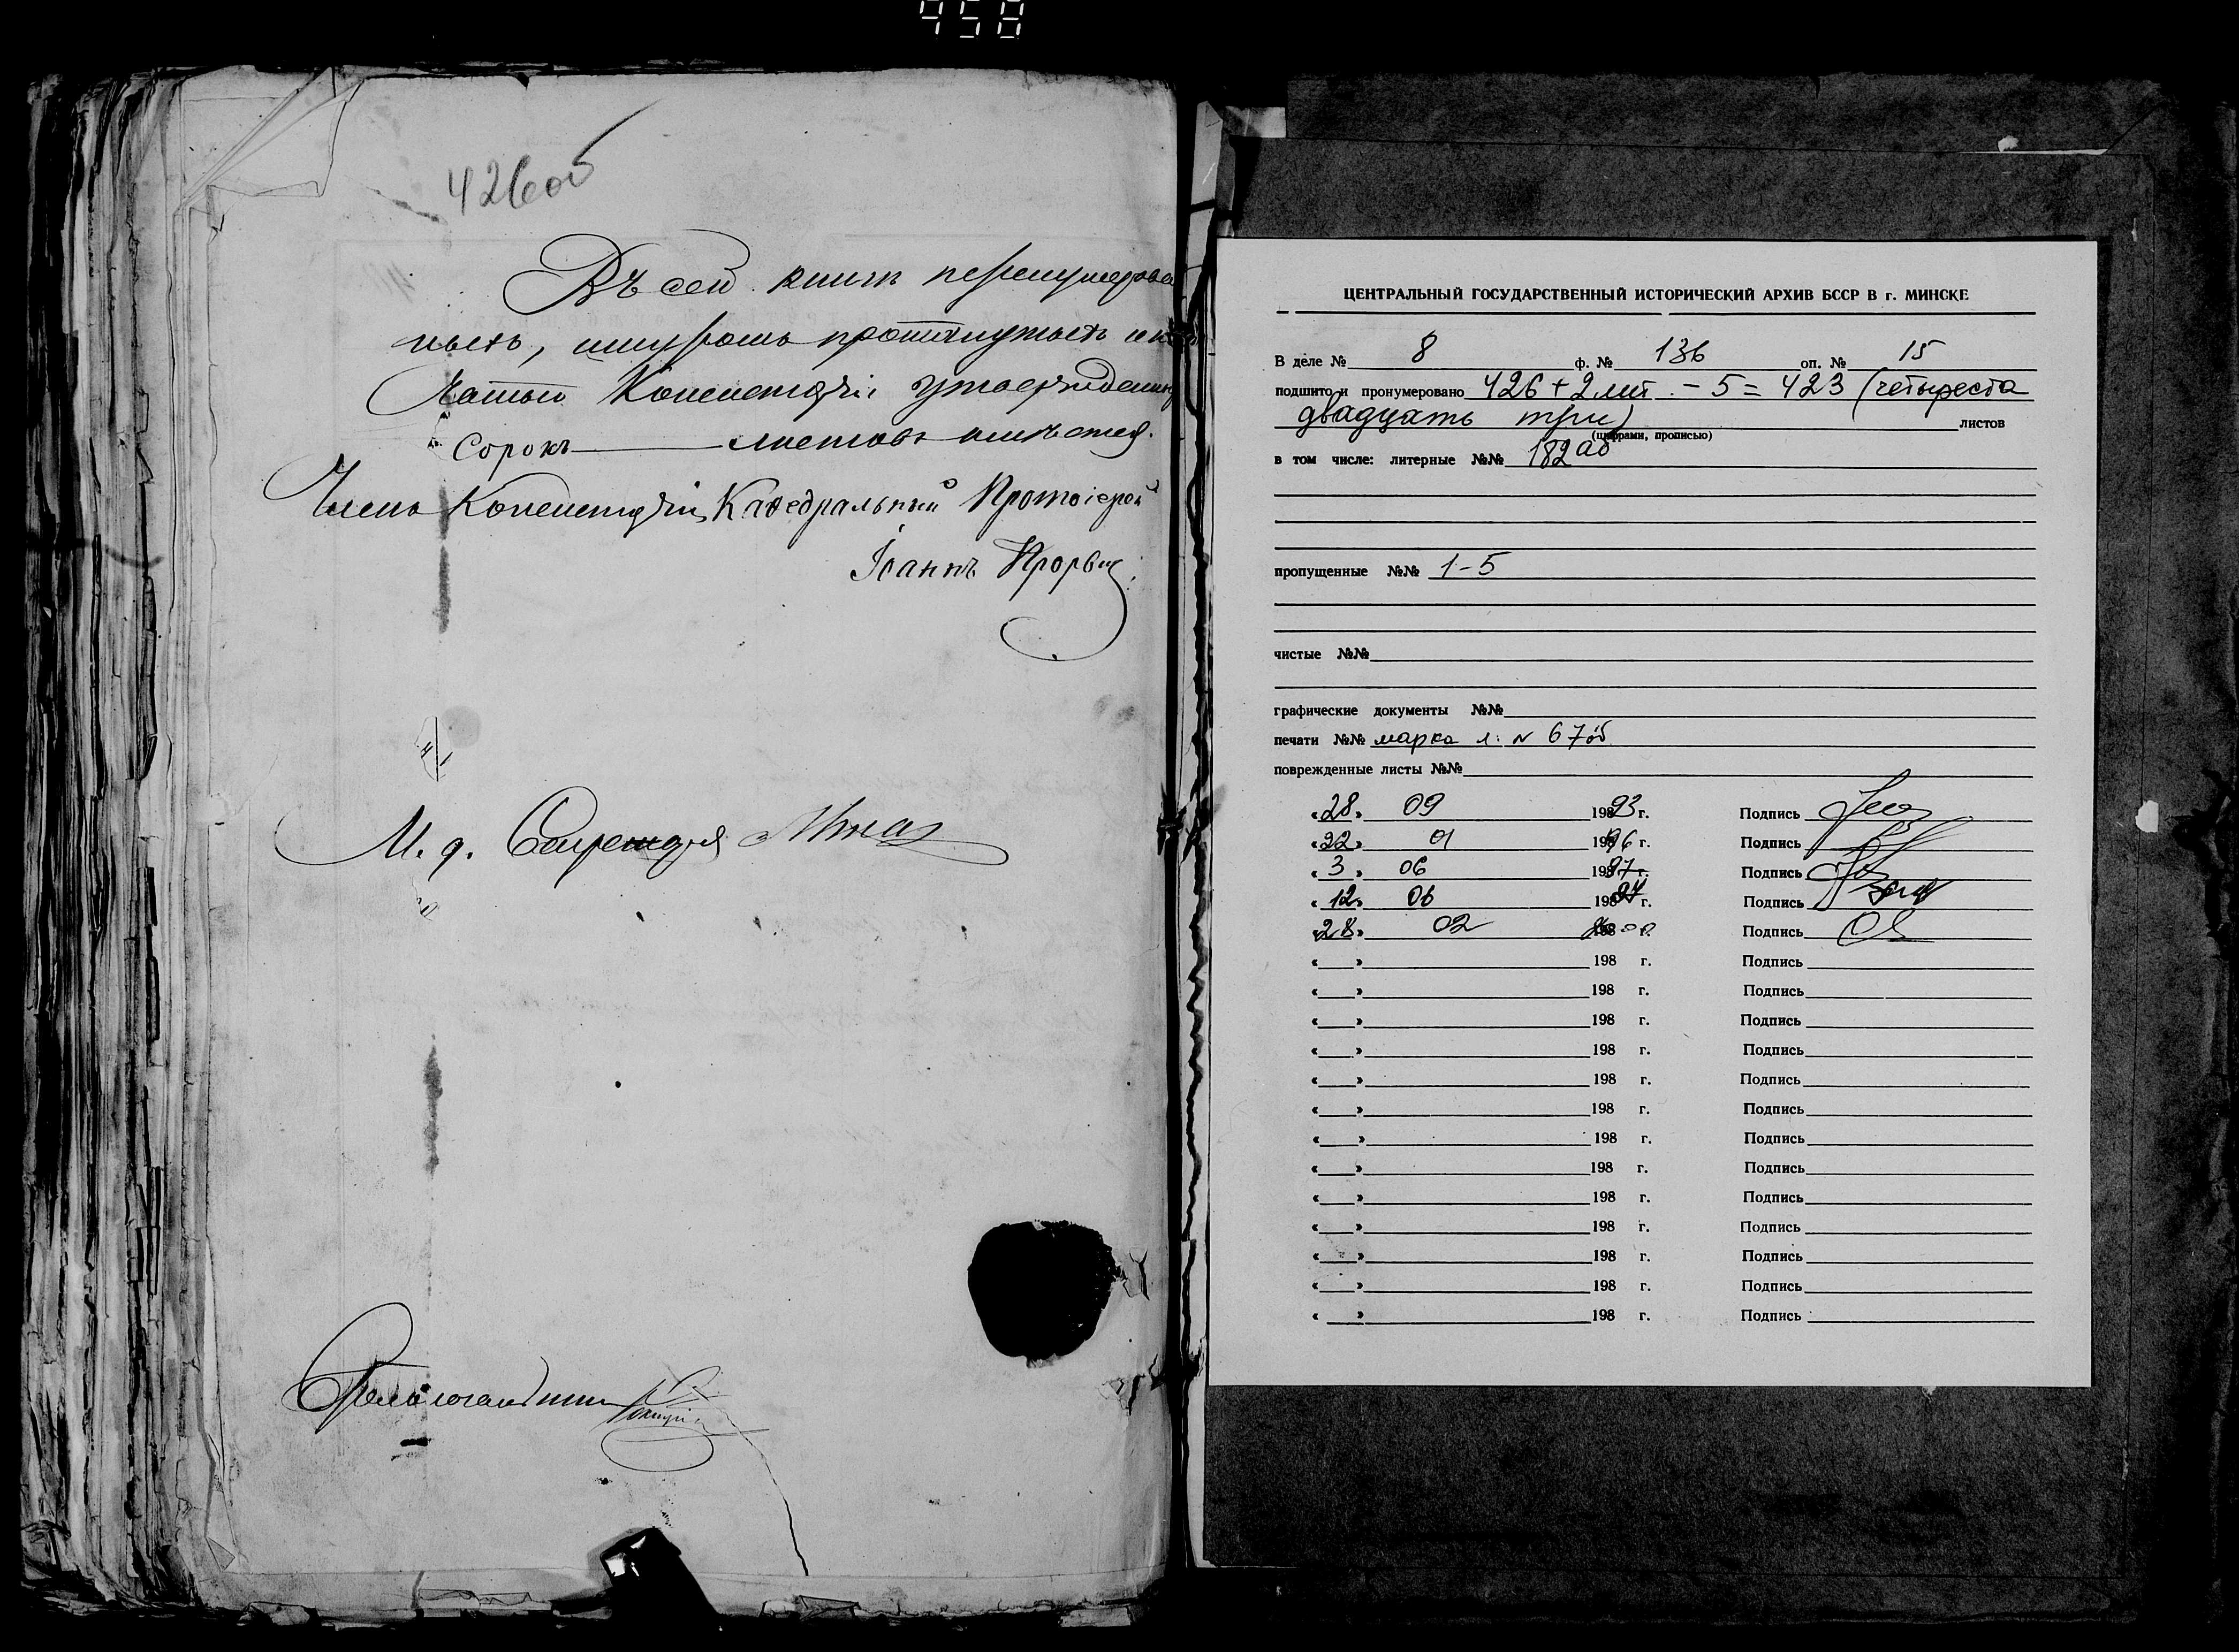 458
426об
Въ сей книгѣ перенумерован
ныхъ, шнуромъ протянутыхъ и пе
чатью Консисторіи утвержденных
Сорокъ листовъ имѣется.
Членъ Консисторіи, Кафедральный Протоіерей
Іоаннъ
И. д. Секретаря
Столоначальникъ
ЦЕНТРАЛЬНЫЙ ГОСУДАРСТВЕННЫЙ ИСТОРИЧЕСКИЙ АРХИВ БССР В г. МИНСКЕ
В деле № 8 ф. № 136 оп. № 15
подшито и пронумеровано 426 + 2 лит. - 5 = 423 (четыреста
двадцать три) листов
(цифрами, прописью)
в том числе: литерные №№ 182аб
пропущенные №№ 1-5
чистые №№
графические документы №№
печати №№ марка л. N 67об
поврежденные листы №№
«28» 09 1993 г. Подпись
«22» 01 1996 г. Подпись
«3» 06 1997 г. Подпись
«12» 06 1997 г. Подпись
«28» 02 2000 г. Подпись
« » 198 г. Подпись
« » 198 г. Подпись
« » 198 г. Подпись
« » 198 г. Подпись
« » 198 г. Подпись
« » 198 г. Подпись
« » 198 г. Подпись
« » 198 г. Подпись
« » 198 г. Подпись
« » 198 г. Подпись
« » 198 г. Подпись
« » 198 г. Подпись
« » 198 г. Подпись